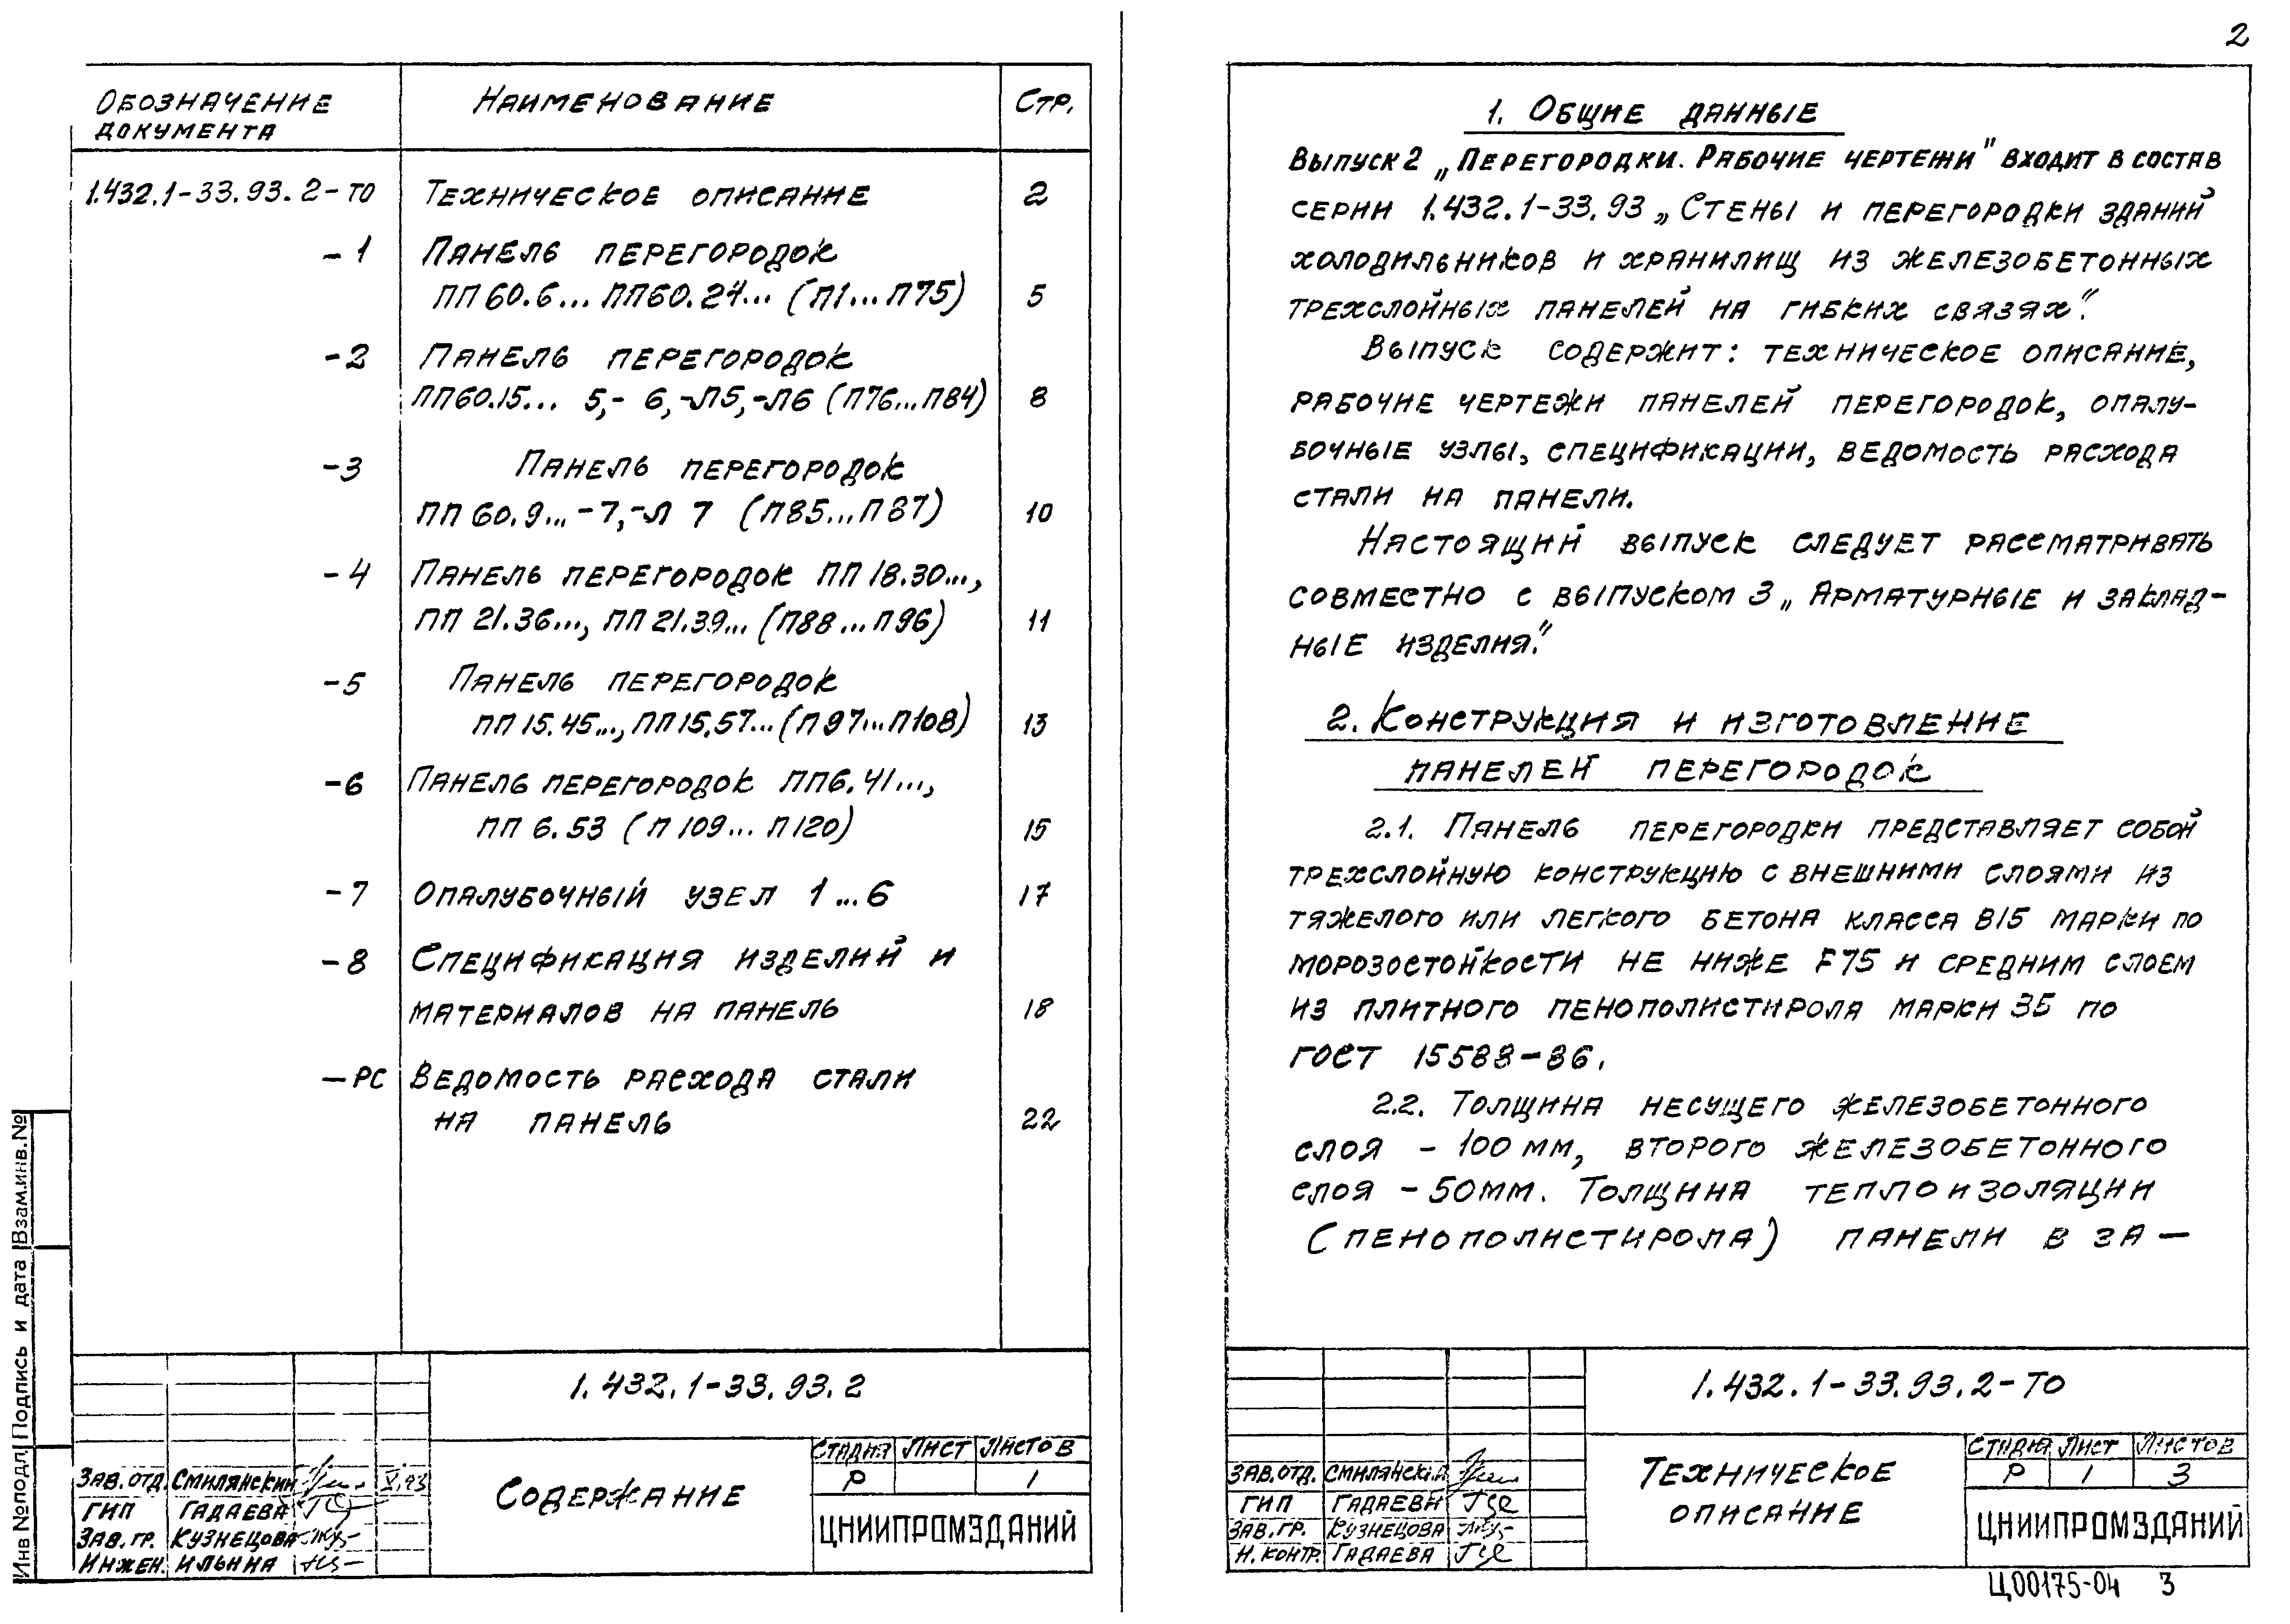 Обозначение документа Наименование Стр.
1.432.1-33.93.2-ТО Техническое описание 2
-1 Панель перегородок
ПП60.6... ПП60.24... (П1...П75) 5
-2 Панель перегородок
ПП60.15... 5,-6,-Л5,-Л6 (П76...П84) 8
-3 Панель перегородок
ПП60.9...-7,-Л 7 (П85...П87) 10
-4 Панель перегородок ПП 18.30...,
ПП 21.36..., ПП 21.39... (П88...П96) 11
-5 Панель перегородок
ПП 15.45..., ПП 15.57... (П97...П108) 13
-6 Панель перегородок ПП6.41...,
ПП 6.53 (П109... П120) 15
-7 Опалубочный узел 1...6 17
-8 Спецификация изделий и
материалов на панель 18
-РС Ведомость расхода стали
на панель 22
Инв №подл. Подпись и дата Взам.инв.№
1.432.1-33.93.2
Содержание
Стадия Лист Листов
Р 1
ЦНИИПРОМЗДАНИЙ
Зав.отд. Смилянский V.93
ГИП Гадаева
Зав.гр. Кузнецова
Инжен. Ильина
2
1. Общие данные
Выпуск 2 „Перегородки. Рабочие чертежи" входит в состав
серии 1.432.1-33.93 „Стены и перегородки зданий
холодильников и хранилищ из железобетонных
трехслойных панелей на гибких связях".
Выпуск содержит: техническое описание,
рабочие чертежи панелей перегородок, опалу-
бочные узлы, спецификации, ведомость расхода
стали на панели.
Настоящий выпуск следует рассматривать
совместно с выпуском 3 „Арматурные и заклад-
ные изделия."
2. Конструкция и изготовление
панелей перегородок
2.1. Панель перегородки представляет собой
трехслойную конструкцию с внешними слоями из
тяжелого или легкого бетона класса В15 марки по
морозостойкости не ниже F75 и средним слоем
из плитного пенополистирола марки 35 по
ГОСТ 15588-86.
2.2. Толщина несущего железобетонного
слоя - 100 мм, второго железобетонного
слоя - 50мм. Толщина теплоизоляции
(пенополистирола) панели в за-
1.432.1-33.93.2-ТО
Техническое
описание
Стадия Лист Листов
Р 1 3
ЦНИИПРОМЗДАНИЙ
Зав.отд. Смилянский
ГИП Гадаева
Зав.гр. Кузнецова
Н.контр. Гадаева
Ц00175-04 3